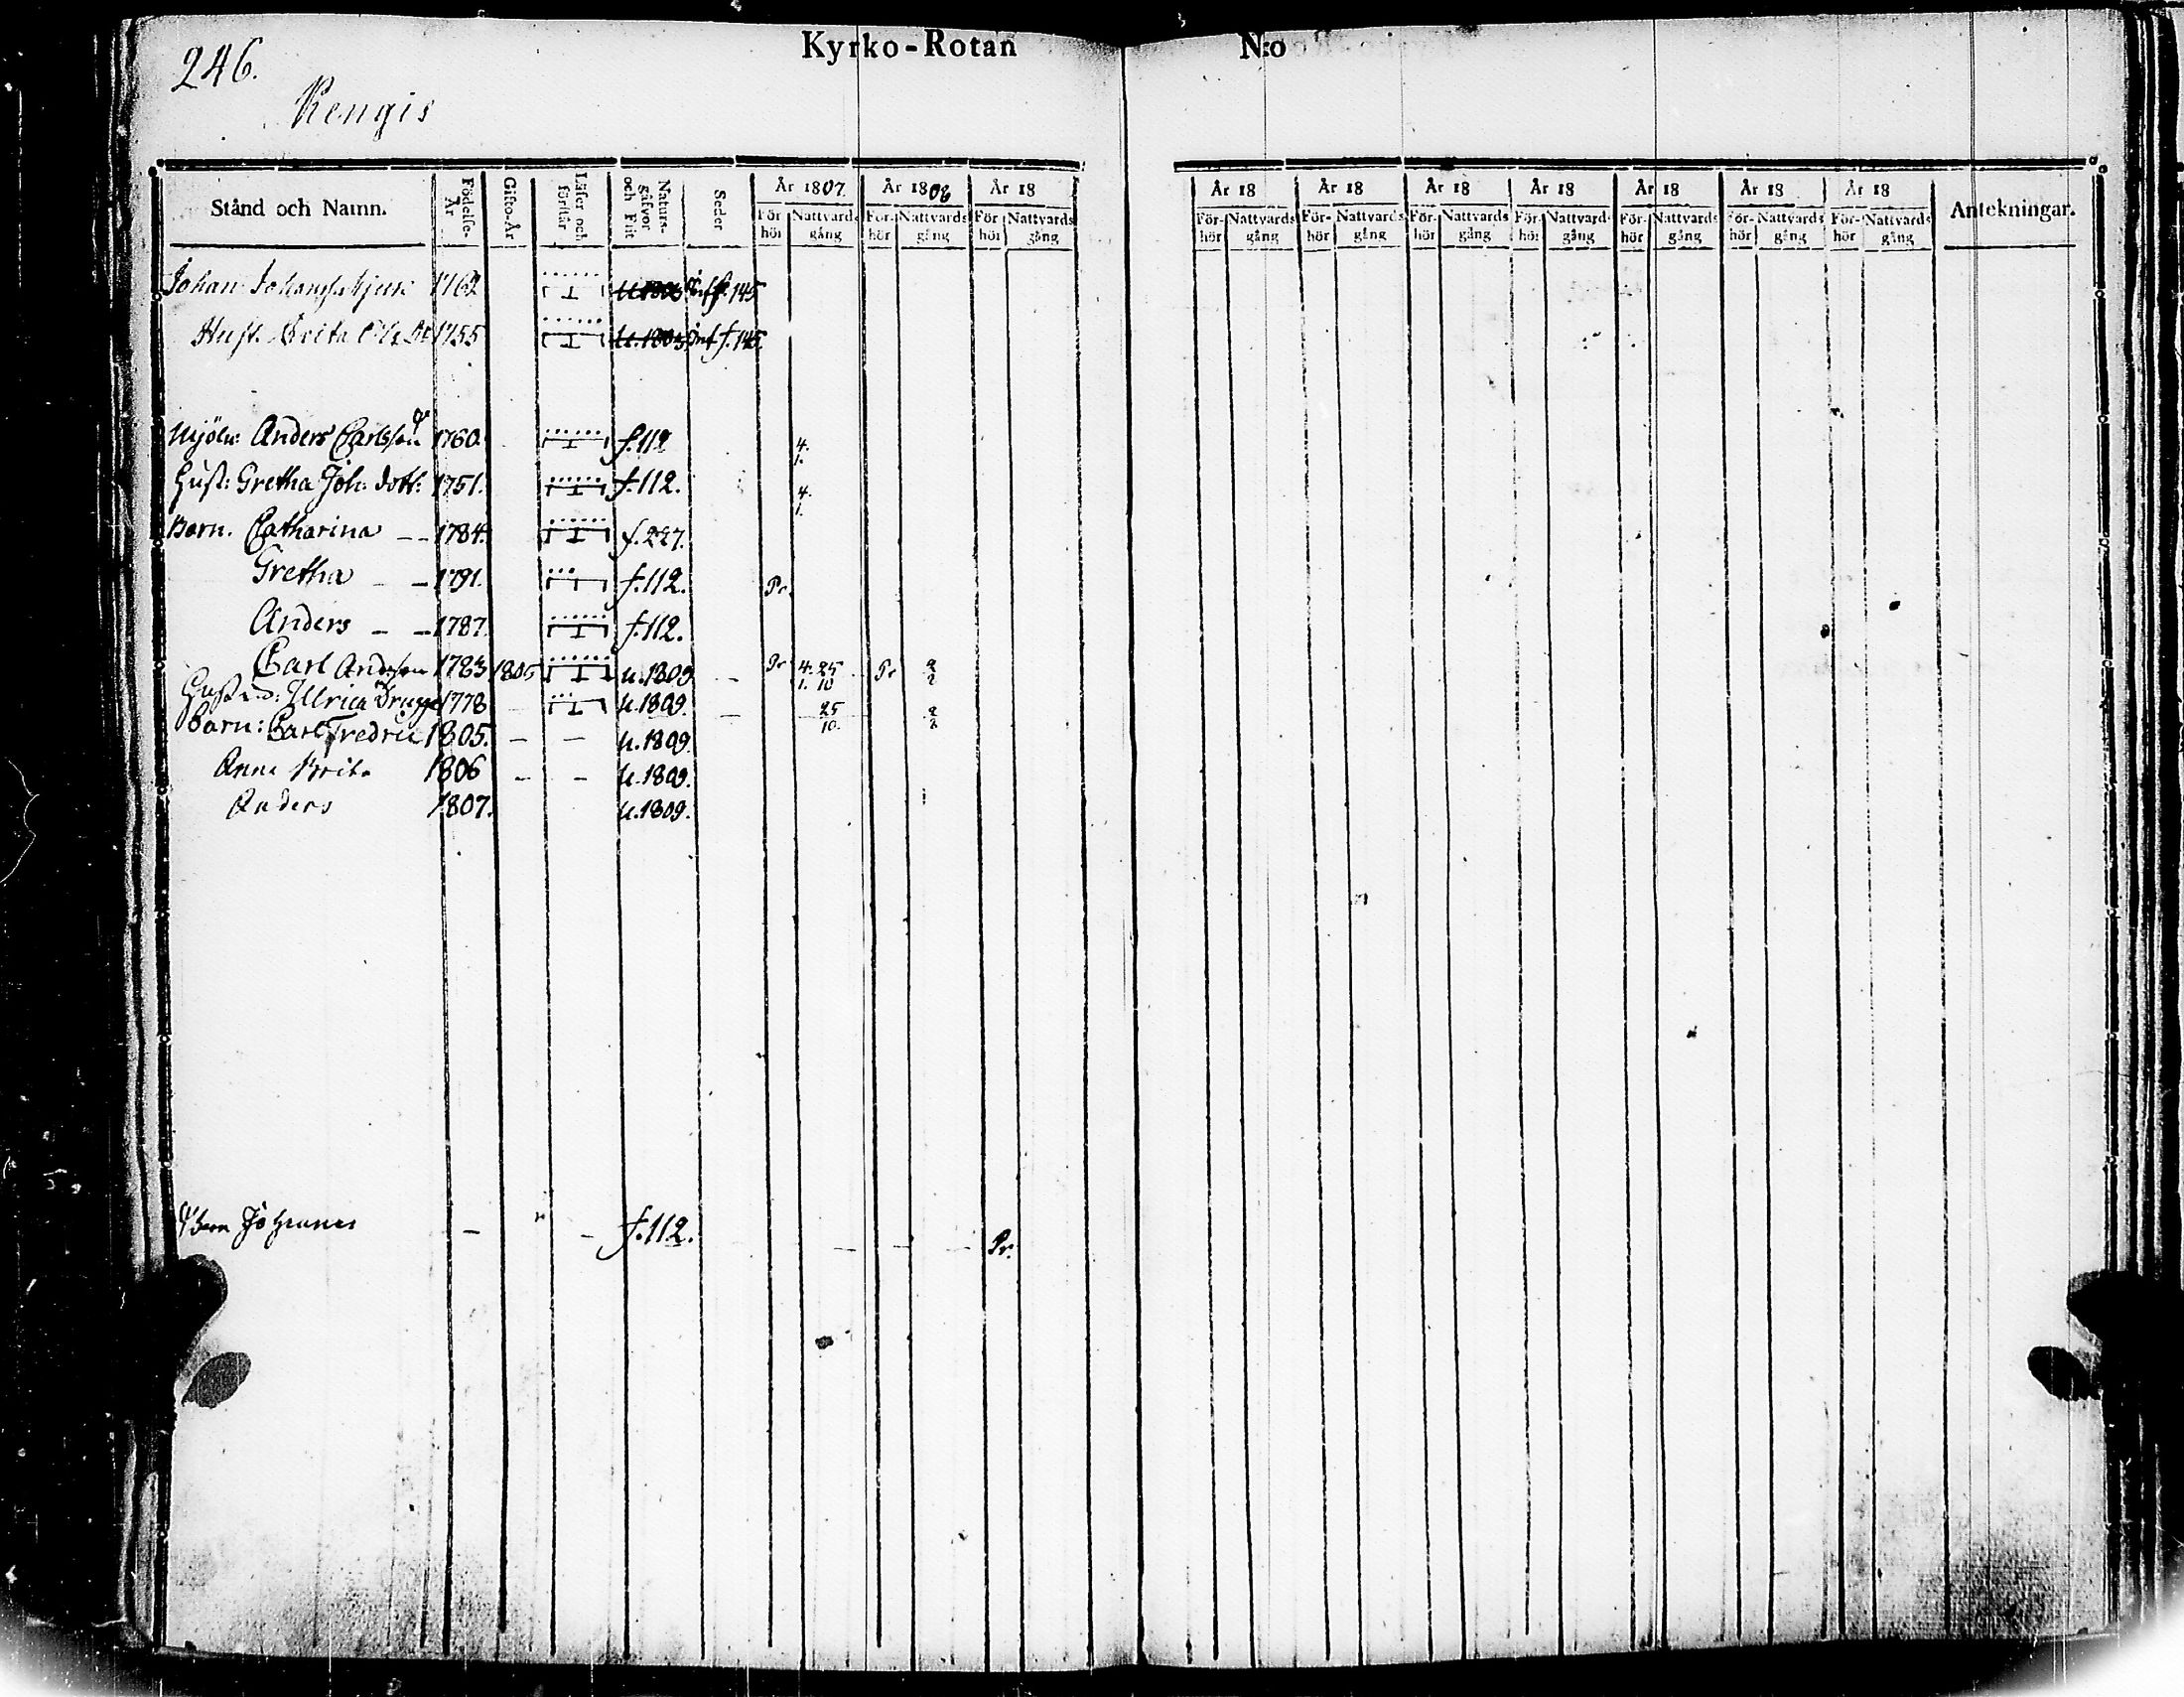 246.
Kyrko-Rotan N:o
Kengis
Stånd och Namn. Födelse-År Gifto-År Läser och förstår Naturs-gåfvor och Flit Seder År 1807 För hör Nattvards gång År 1808 För-hör Nattvards gång År 18 För hör Nattvards gång År 18 För-hör Nattvards gång År 18 För-hör Nattvards gång År 18 För-hör Nattvards gång År 18 För-hör Nattvards gång År 18 För-hör Nattvards gång År 18 För-hör Nattvards gång År 18 För-hör Nattvards gång Antekningar.
Johan 1762 f. 145
Hust. Brita 1755 f. 145
Mjöln: Anders Carlsson 1760. f. 112 4. 1.
Hust: Gretha Joh: dott: 1751. f. 112. 4. 1.
Barn. Catharina - - 1784. f. 227.
Gretha - - 1791. f. 112. Pr.
Anders - - 1787. f. 112.
Carl Andersson 1783 1805 u. 1809 Pr 4. 25 1. 10 Pr 2 2
Ullrica 1778 u. 1809. 25 10. 2 2
Barn: Carl Fredric 1805. - - u. 1809.
Anna Brita 1806 - - u. 1809.
Anders 1807. u. 1809.
Johannes - - f. 112. - - - Pr.